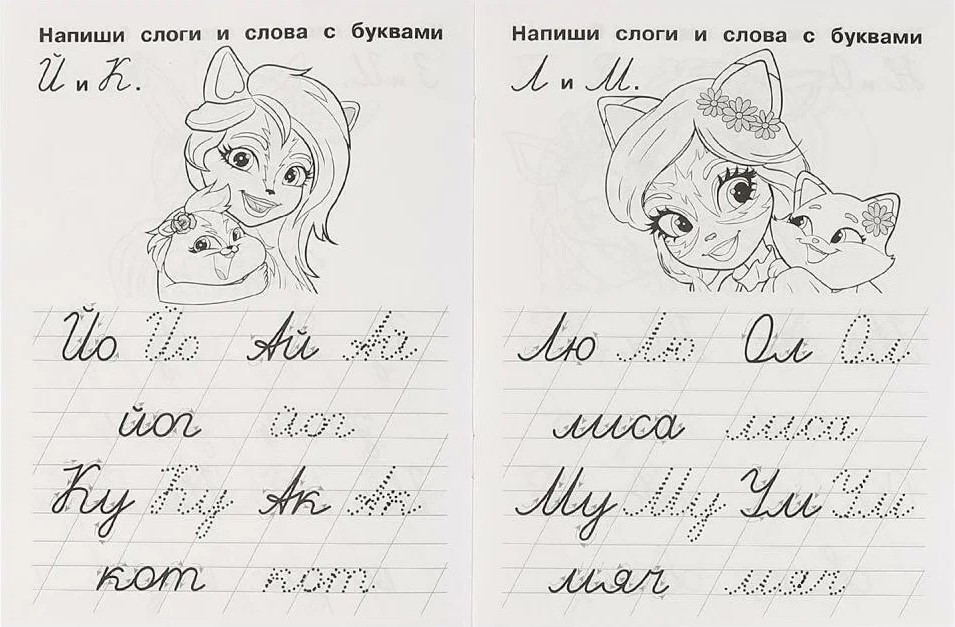 Напиши слоги и слова с буквами
Й и К.
Йо Йо Ай Ай
йог йог
Ку Ку Ак Ак
кот кот
Напиши слоги и слова с буквами
Л и М.
Лю Лю Ол Ол
лиса лиса
Му Му Ум Ум
мяч мяч